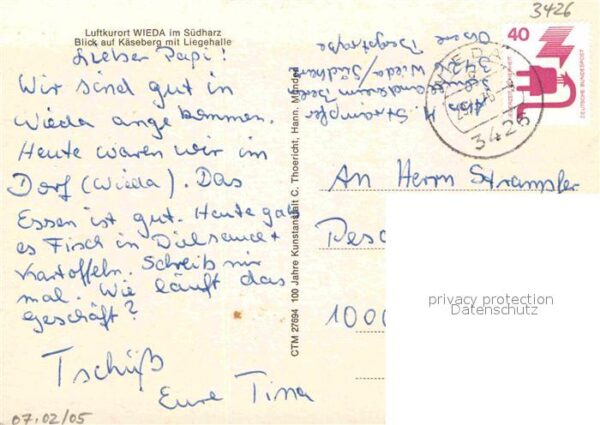 3426
Luftkurort WIEDA im Südharz
Blick auf Käseberg mit Liegehalle
Lieber Papi!
Wir sind gut in
Wieda angekommen.
Heute waren wir im
Dorf (Wieda). Das
Essen ist gut. Heute gab
es Fisch in Dillsauce +
Kartoffeln. Schreib mir
mal. Wie läuft das
Geschäft?
Tschüß
Eure Tina
07.02/05
CTM 27694 100 Jahre Kunstanstalt C. Thoericht, Hann. Münden
Strampfer
3426 Wieda/Südharz
Obere Bergstraße
40
DEUTSCHE BUNDESPOST
3426
An Herrn Strampfer
1000
privacy protection
Datenschutz